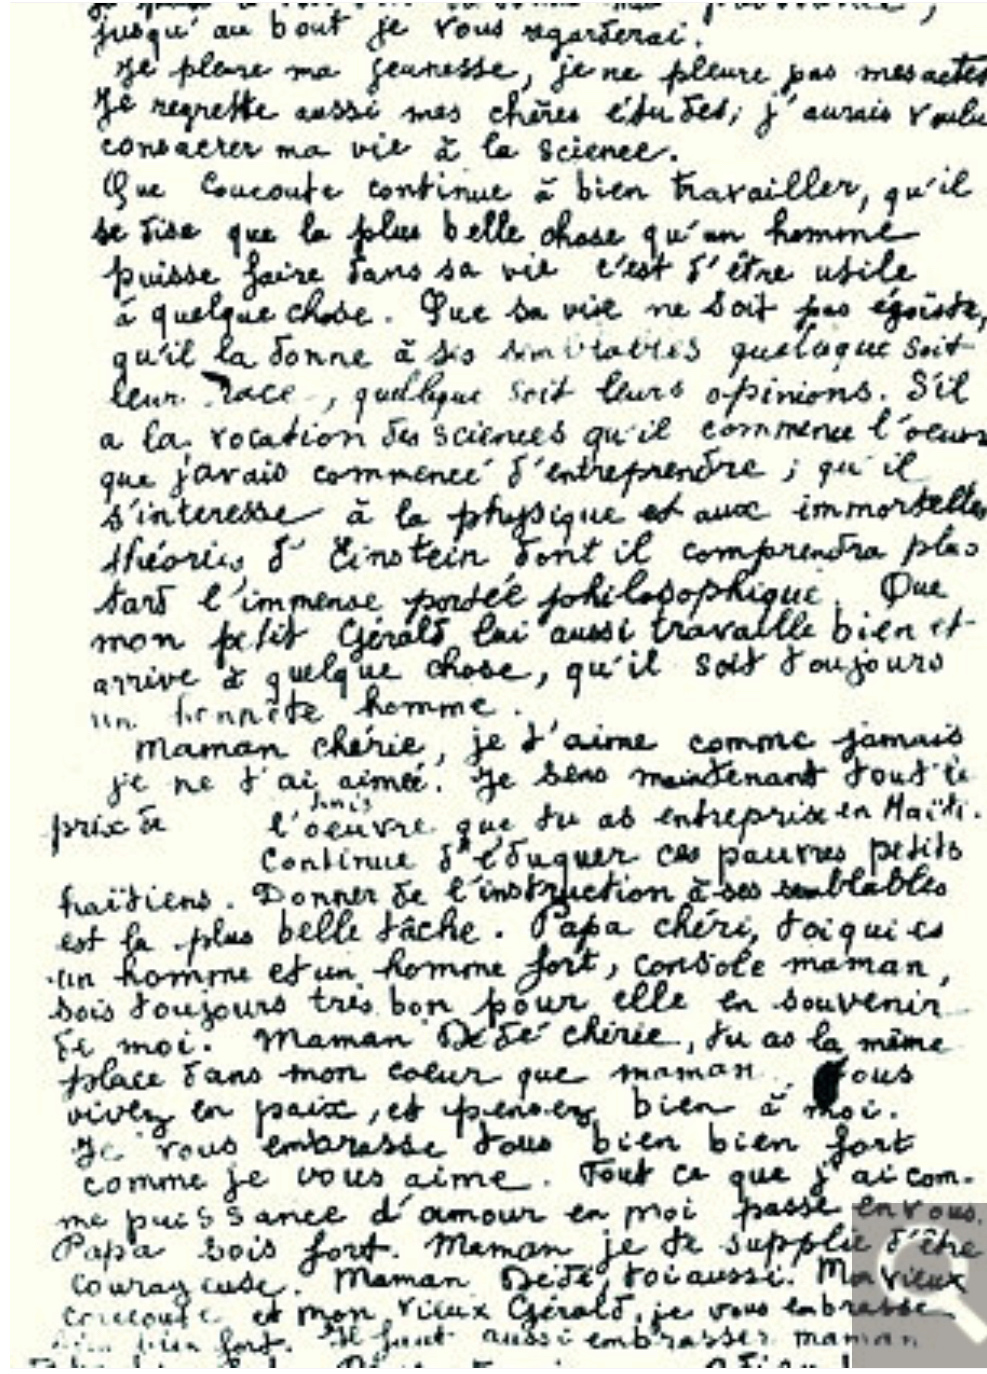 jusqu'au bout je vous regarderai.
Je pleure ma jeunesse, je ne pleure pas mes actes
Je regrette aussi mes chères études; j'aurais voulu
consacrer ma vie à la science.
Que Coucoute continue à bien travailler, qu'il
se dise que la plus belle chose qu'un homme
puisse faire dans sa vie c'est d'être utile
à quelque chose. Que sa vie ne soit pas égoïste,
qu'il la donne à ses semblables quelque soit
leur race, quelque soit leurs opinions. S'il
a la vocation des sciences qu'il commence l'oeuvre
que j'avais commencé d'entreprendre; qu'il
s'interesse à la physique et aux immortelles
théories d'Einstein dont il comprendra plus
tard l'immense portée philosophique. Que
mon petit Gérald lui aussi travaille bien et
arrive à quelque chose, qu'il soit toujours
un honnête homme.
Maman chérie, je t'aime comme jamais
je ne t'ai aimée. Je sens maintenant tout le
prix de l'oeuvre que tu as entreprise en Haïti.
Continue d'éduquer ces pauvres petits
haïtiens. Donner de l'instruction à ses semblables
est la plus belle tâche. Papa chéri, toi qui es
un homme et un homme fort, console maman,
sois toujours très bon pour elle en souvenir
de moi. Maman Dédé chérie, tu as la même
place dans mon coeur que maman. Tous
vivez en paix, et pensez bien à moi.
Je vous embrasse tous bien bien fort
comme je vous aime. Tout ce que j'ai com-
me puissance d'amour en moi passe en vous.
Papa sois fort. Maman je te supplie d'être
courageuse. Maman Dédé, toi aussi. Mon vieux
coucoute et mon vieux Gérald, je vous embrasse
bien bien fort. Il faut aussi embrasser maman